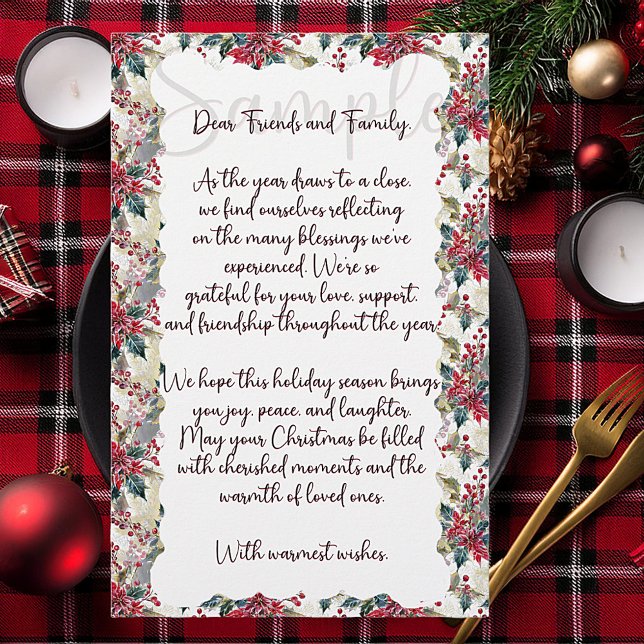 Sample
Dear Friends and Family,
As the year draws to a close,
we find ourselves reflecting
on the many blessings we've
experienced. We're so
grateful for your love, support,
and friendship throughout the year.
We hope this holiday season brings
you joy, peace, and laughter.
May your Christmas be filled
with cherished moments and the
warmth of loved ones.
With warmest wishes,